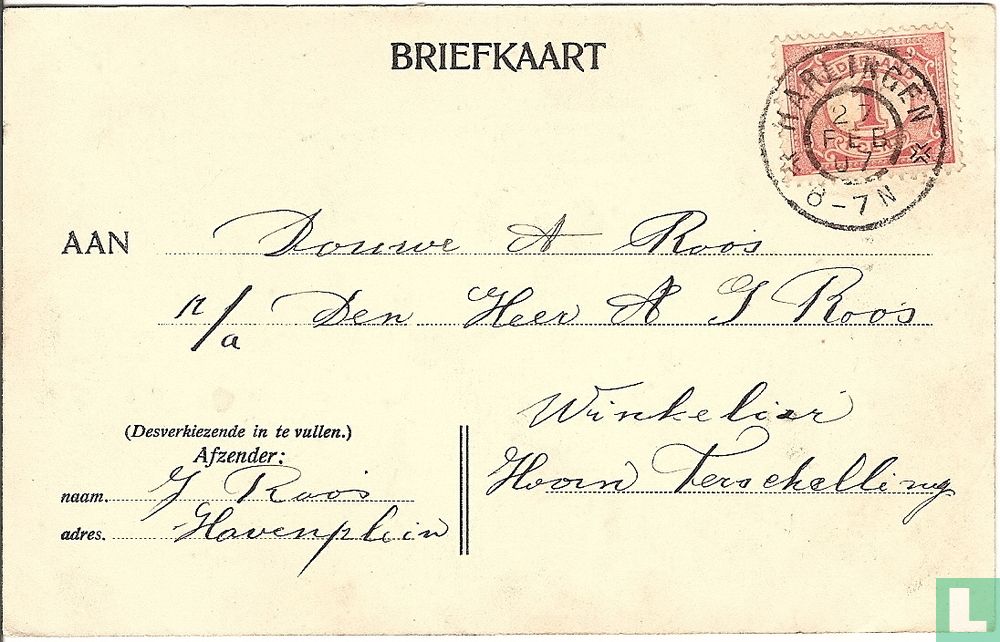 BRIEFKAART
NEDERLAND
1
CENT
HARLINGEN
27
FEB
07
6-7N
AAN Douwe A Roos
p/a Den Heer A G Roos
Winkelier
Hoorn Terschelling
(Desverkiezende in te vullen.)
Afzender:
naam. G Roos
adres. Havenplein
L